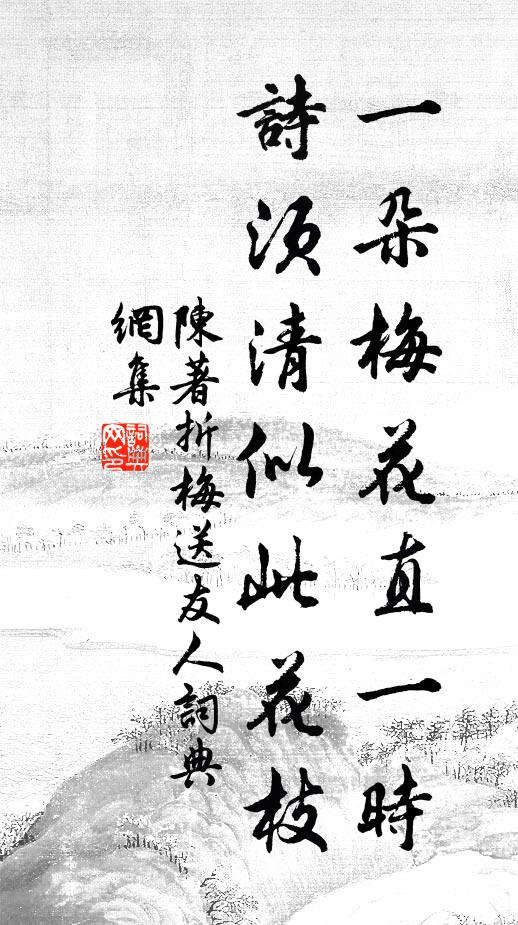 一朵梅花直一時
詩須清似此花枝
陳著折梅送友人詞典
網集